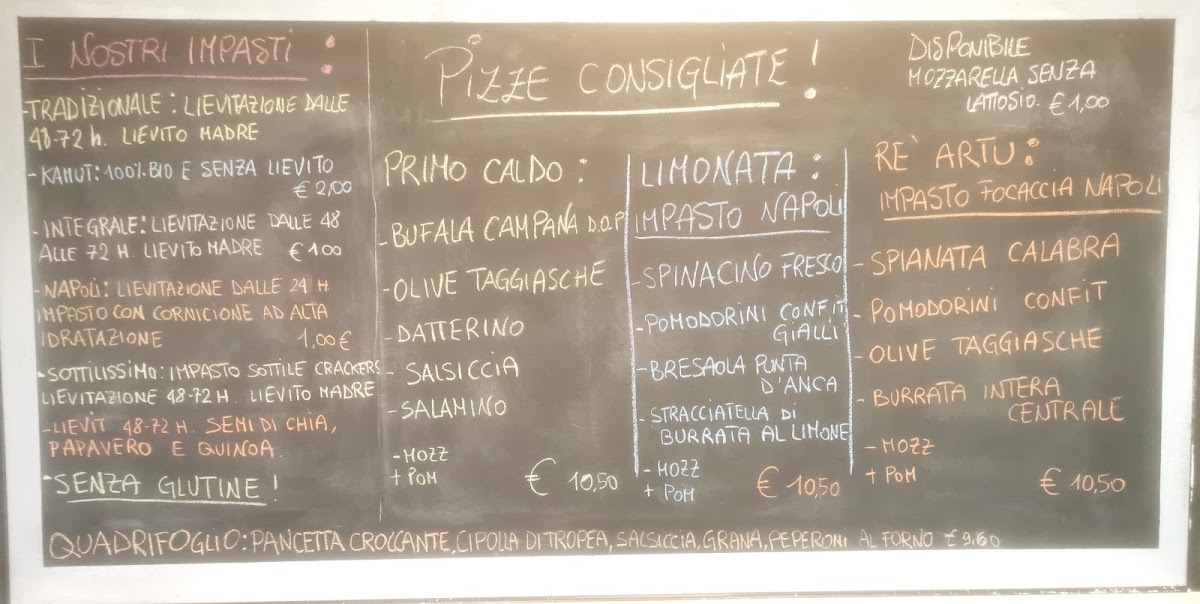 I NOSTRI IMPASTI :
-TRADIZIONALE: LIEVITAZIONE DALLE
48-72 h. LIEVITO MADRE
- KAMUT: 100% BIO E SENZA LIEVITO
€ 2,00
- INTEGRALE: LIEVITAZIONE DALLE 48
ALLE 72 H. LIEVITO MADRE € 1.00
- NAPOLI: LIEVITAZIONE DALLE 24 H
IMPASTO CON CORNICIONE AD ALTA
IDRATAZIONE 1,00 €
- SOTTILISSIMO: IMPASTO SOTTILE CRACKERS
LIEVITAZIONE 48-72 H. LIEVITO MADRE
- LIEVIT 48-72 H. SEMI DI CHIA,
PAPAVERO E QUINOA
- SENZA GLUTINE !
PIZZE CONSIGLIATE !
DISPONIBILE
MOZZARELLA SENZA
LATTOSIO. € 1,00
PRIMO CALDO :
- BUFALA CAMPANA D.O.P
- OLIVE TAGGIASCHE
- DATTERINO
- SALSICCIA
- SALAMINO
- MOZZ
+ POM € 10,50
LIMONATA :
IMPASTO NAPOLI
- SPINACINO FRESCO
- POMODORINI CONFIT
GIALLI
- BRESAOLA PUNTA
D'ANCA
- STRACCIATELLA DI
BURRATA AL LIMONE
- MOZZ
+ POM € 10,50
RE' ARTU :
IMPASTO FOCACCIA NAPOLI
- SPIANATA CALABRA
- POMODORINI CONFIT
- OLIVE TAGGIASCHE
- BURRATA INTERA
CENTRALE
- MOZZ
+ POM € 10,50
QUADRIFOGLIO: PANCETTA CROCCANTE, CIPOLLA DI TROPEA, SALSICCIA, GRANA, PEPERONI AL FORNO € 9.60